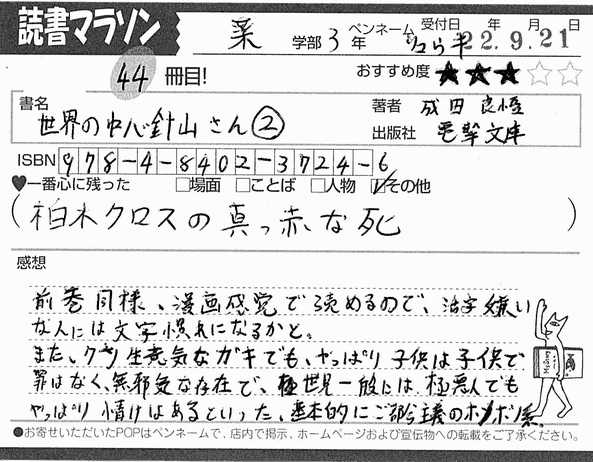 読書マラソン
薬 学部 3 年 ペンネーム 受付日 年 月 日
22.9.21
44 冊目! おすすめ度 ★★★☆☆
書名 世界の中心針山さん② 著者 成田良悟
出版社 電撃文庫
ISBN 978-4-8402-3724-6
♥一番心に残った □場面 □ことば □人物 ☑その他
(柏木クロスの真っ赤な死)
感想
前巻同様、漫画感覚で読めるので、活字嫌い
な人には文字慣れになるかと。
また、クソ生意気なガキでも、やっぱり子供は子供で
罪はなく、無邪気な存在で、極世一般には、極悪人でも
やっぱり情けはあるといった、基本的にご都合主義のホンボノ系。
●お寄せいただいたPOPはペンネームで、店内で掲示、ホームページおよび宣伝物への転載をご了承ください。